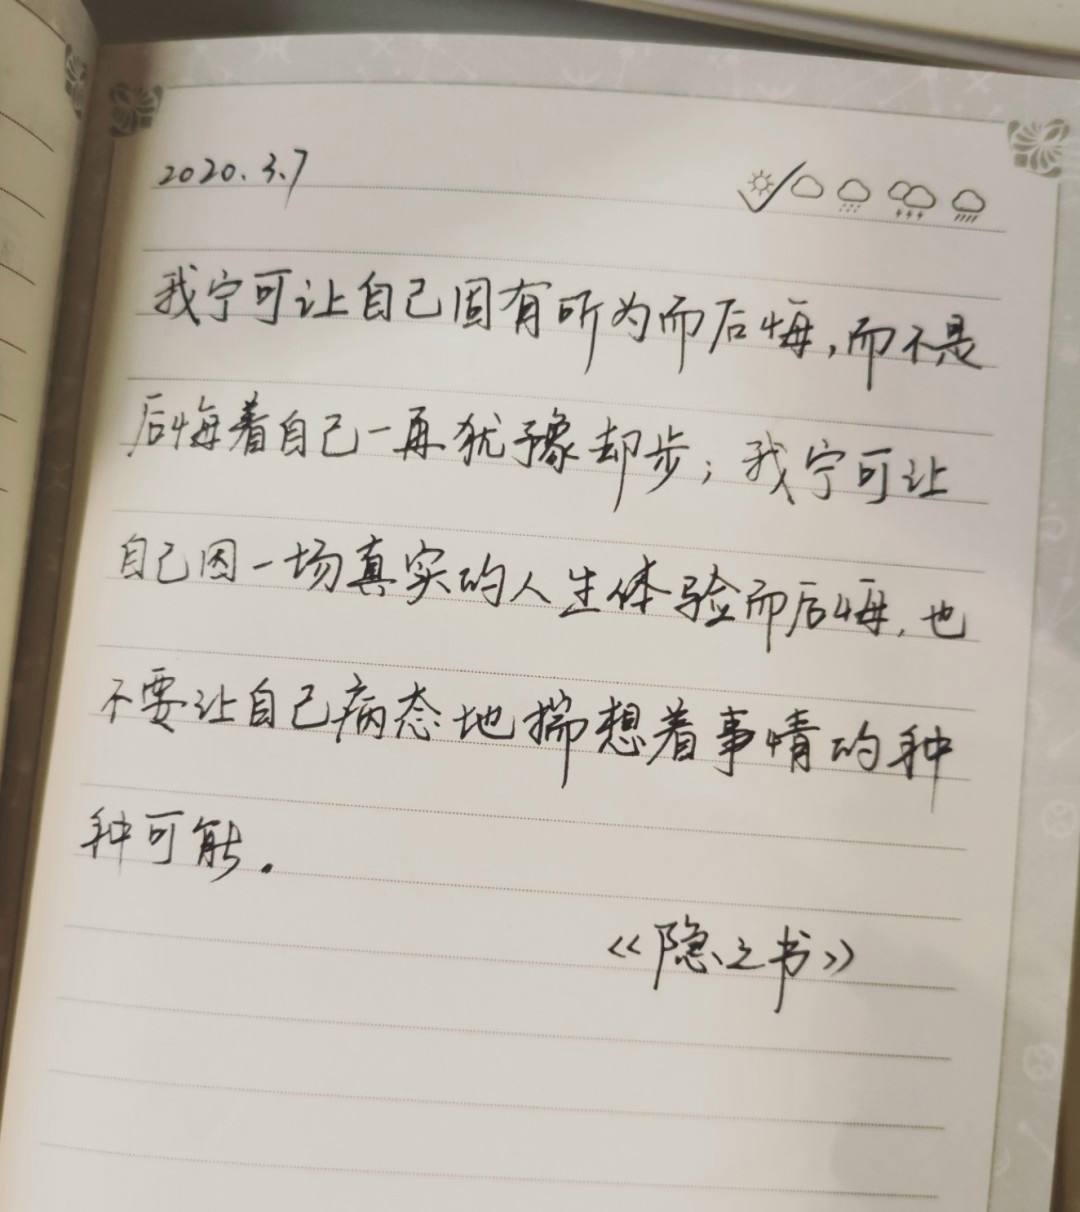 2020.3.7
我宁可让自己因有所为而后悔,而不是
后悔着自己一再犹豫却步;我宁可让
自己因一场真实的人生体验而后悔,也
不要让自己病态地揣想着事情的种
种可能.
《隐之书》